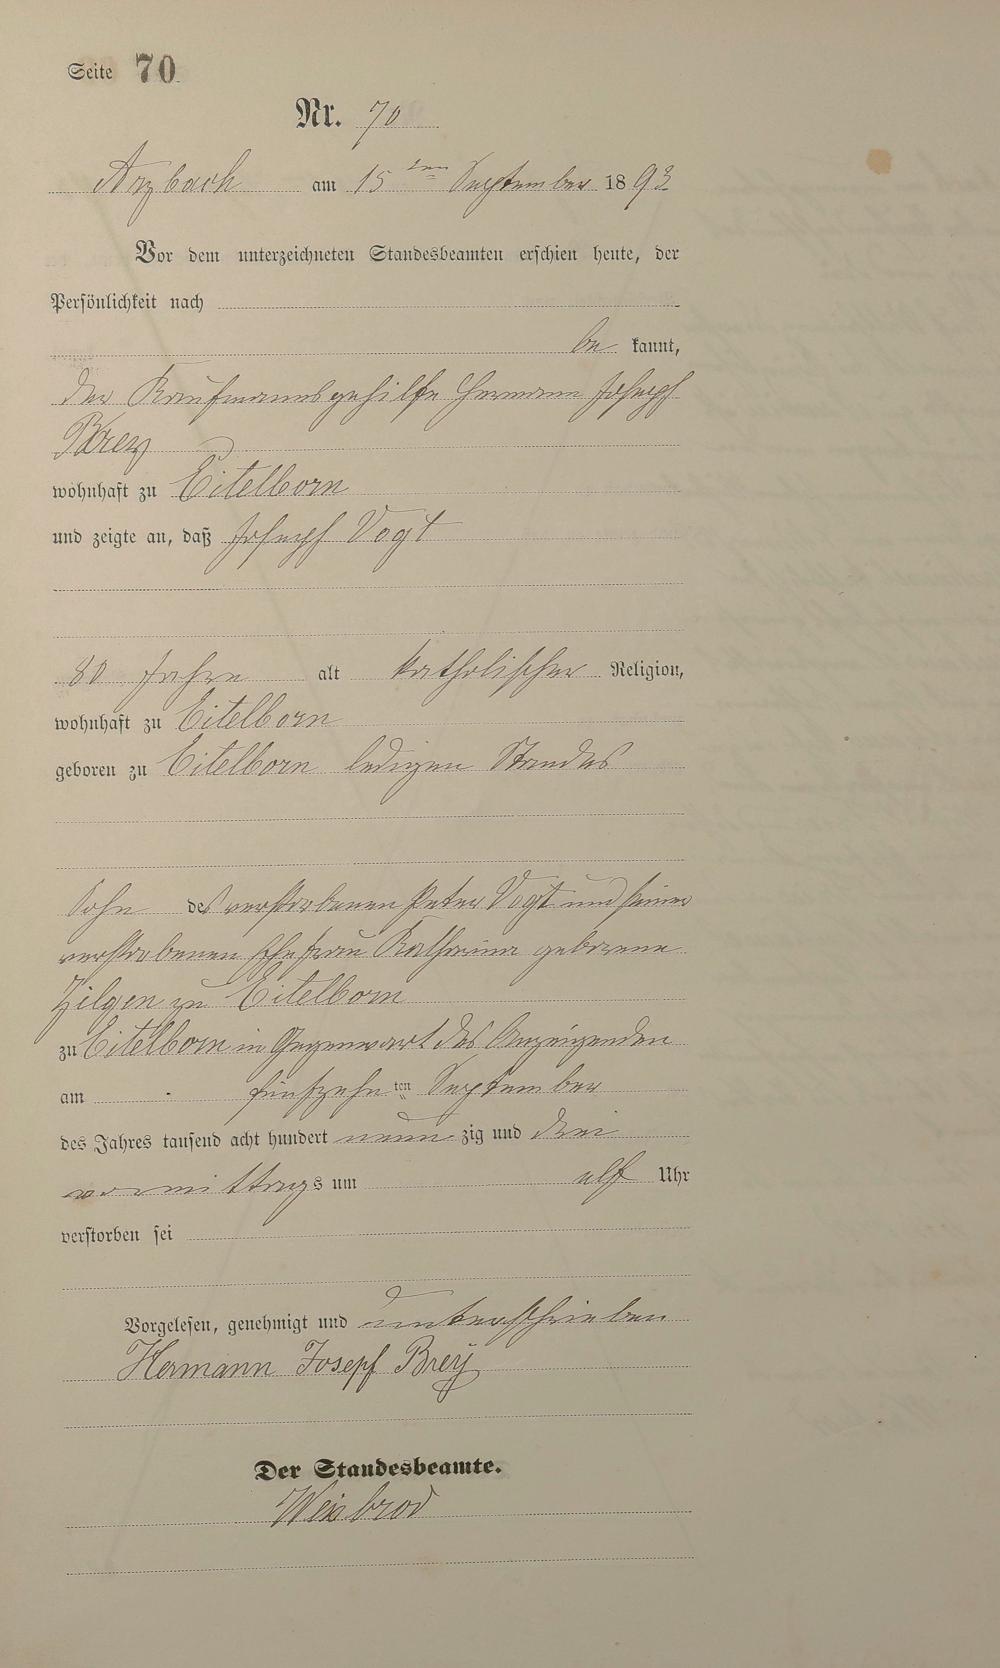 Seite 70
Nr. 70
Arzbach am 15ten September 1893
Vor dem unterzeichneten Standesbeamten erschien heute, der
Persönlichkeit nach
be kannt,
der Kaufmannsgehilfe Hermann Joseph
Brey
wohnhaft zu Eitelborn
und zeigte an, daß Joseph Vogt
80 Jahre alt katholischer Religion,
wohnhaft zu Eitelborn
geboren zu Eitelborn ledigen Standes
Sohn des verstorbenen Peter Vogt und seiner
verstorbenen Ehefrau Katharina geborene
Zilgen zu Eitelborn
zu Eitelborn in Gegenwart des Anzeigenden
am fünfzehnten September
des Jahres tausend acht hundert neun zig und drei
vormittags um elf Uhr
verstorben sei
Vorgelesen, genehmigt und unterschrieben
Hermann Josepf Breÿ
Der Standesbeamte.
Weisbrod